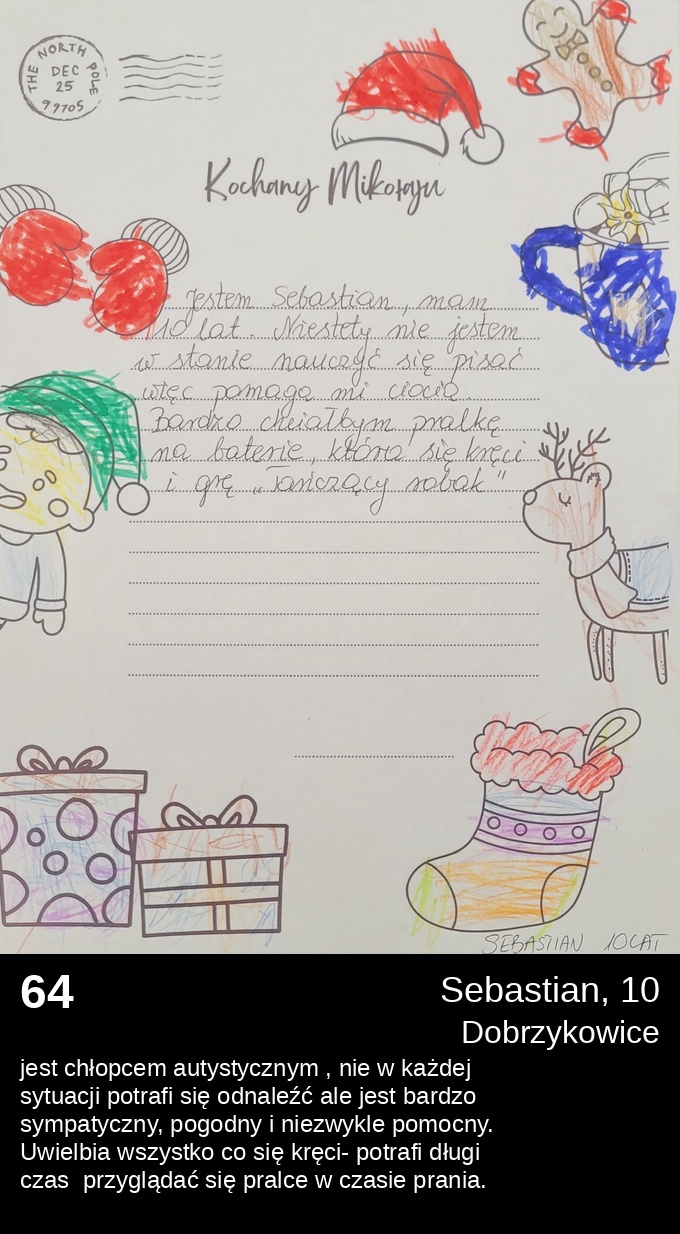 THE NORTH POLE
DEC
25
99705
Kochany Mikołaju
Jestem Sebastian, mam
10 lat. Niestety nie jestem
w stanie nauczyć się pisać
więc pomaga mi ciocia.
Bardzo chciałbym pralkę
na baterie, która się kręci
i grę „Tańczący robak"
SEBASTIAN 10 LAT
64
Sebastian, 10
Dobrzykowice
jest chłopcem autystycznym , nie w każdej
sytuacji potrafi się odnaleźć ale jest bardzo
sympatyczny, pogodny i niezwykle pomocny.
Uwielbia wszystko co się kręci- potrafi długi
czas  przyglądać się pralce w czasie prania.